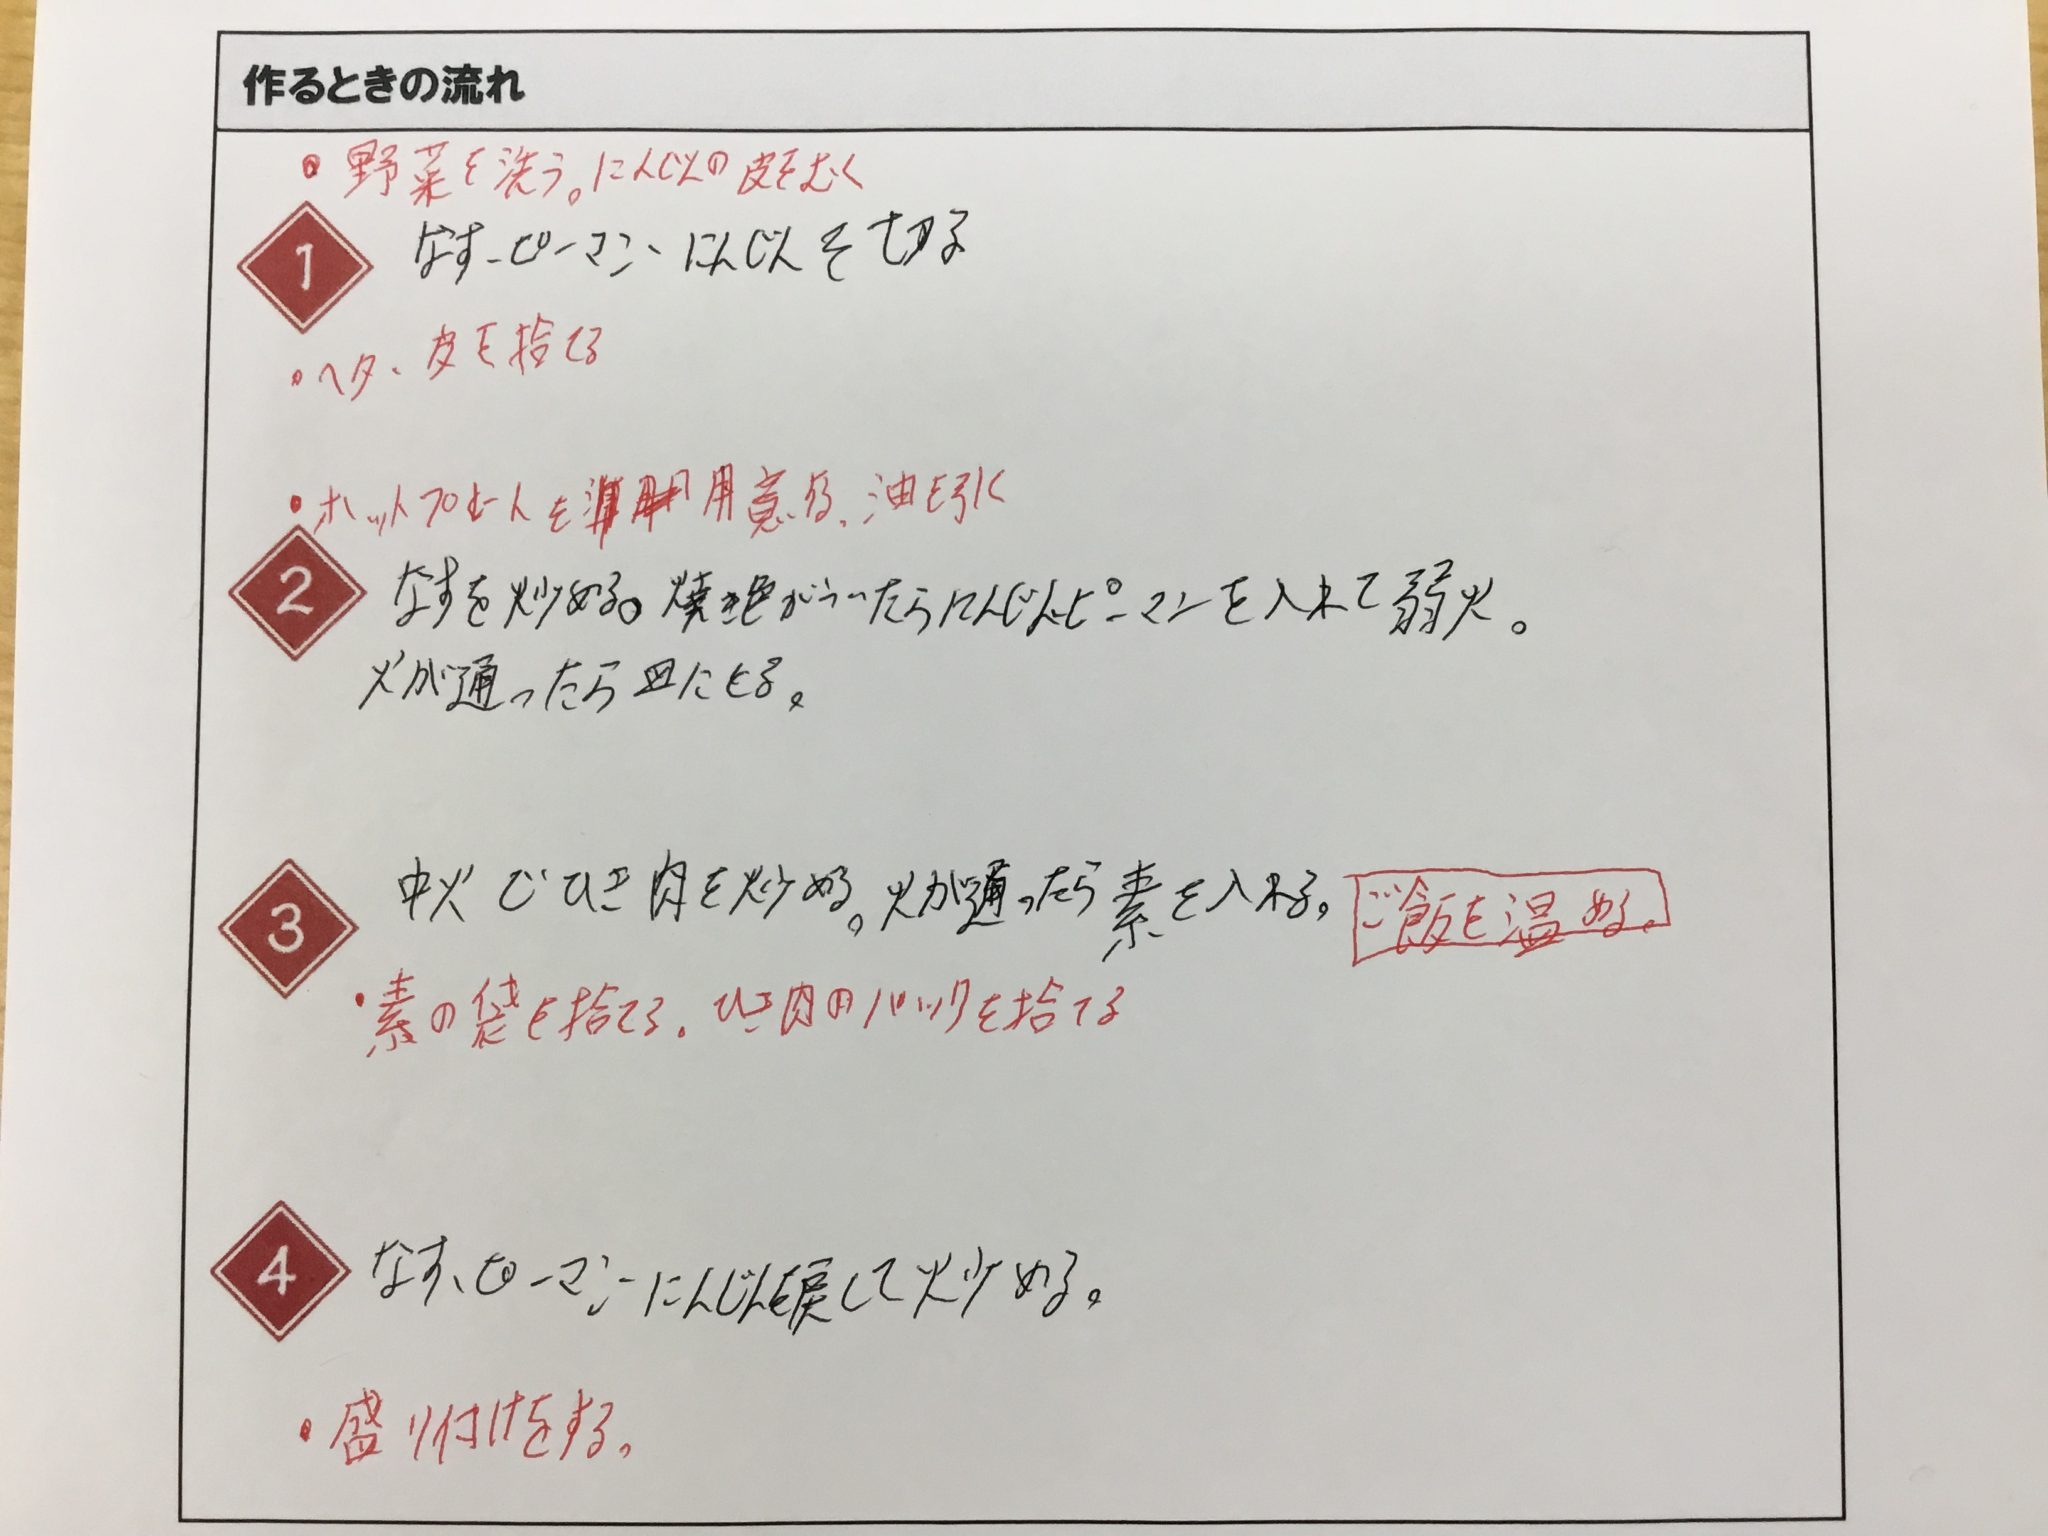 作るときの流れ
・野菜を洗う。にんじんの皮をむく
1 なす、ピーマン、にんじんを切る
・ヘタ、皮を捨てる
・ホットプレートを用意する、油を引く
2 なすを炒める。焼き色がついたらにんじん、ピーマンを入れて弱火。
火が通ったら皿にとる。
3 中火でひき肉を炒める。火が通ったら素を入れる。ご飯を温める。
・素の袋を捨てる。ひき肉のパックを捨てる
4 なす、ピーマン、にんじんを戻して炒める。
・盛り付けをする。